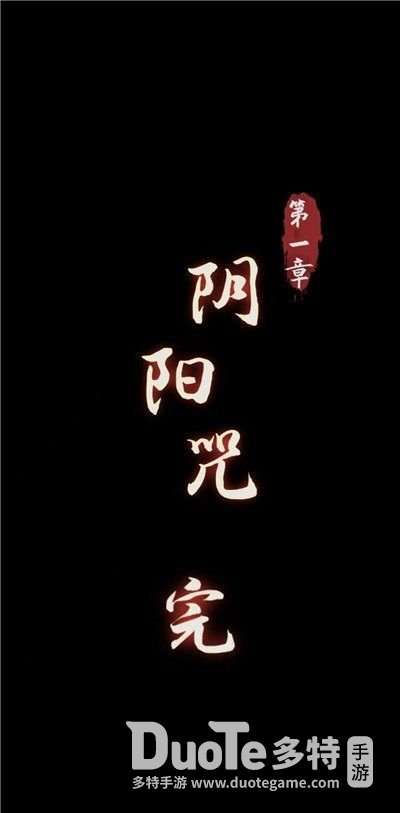 第一章
阴阳咒
完
DuoTe多特手游
多特手游 www.duotegame.com